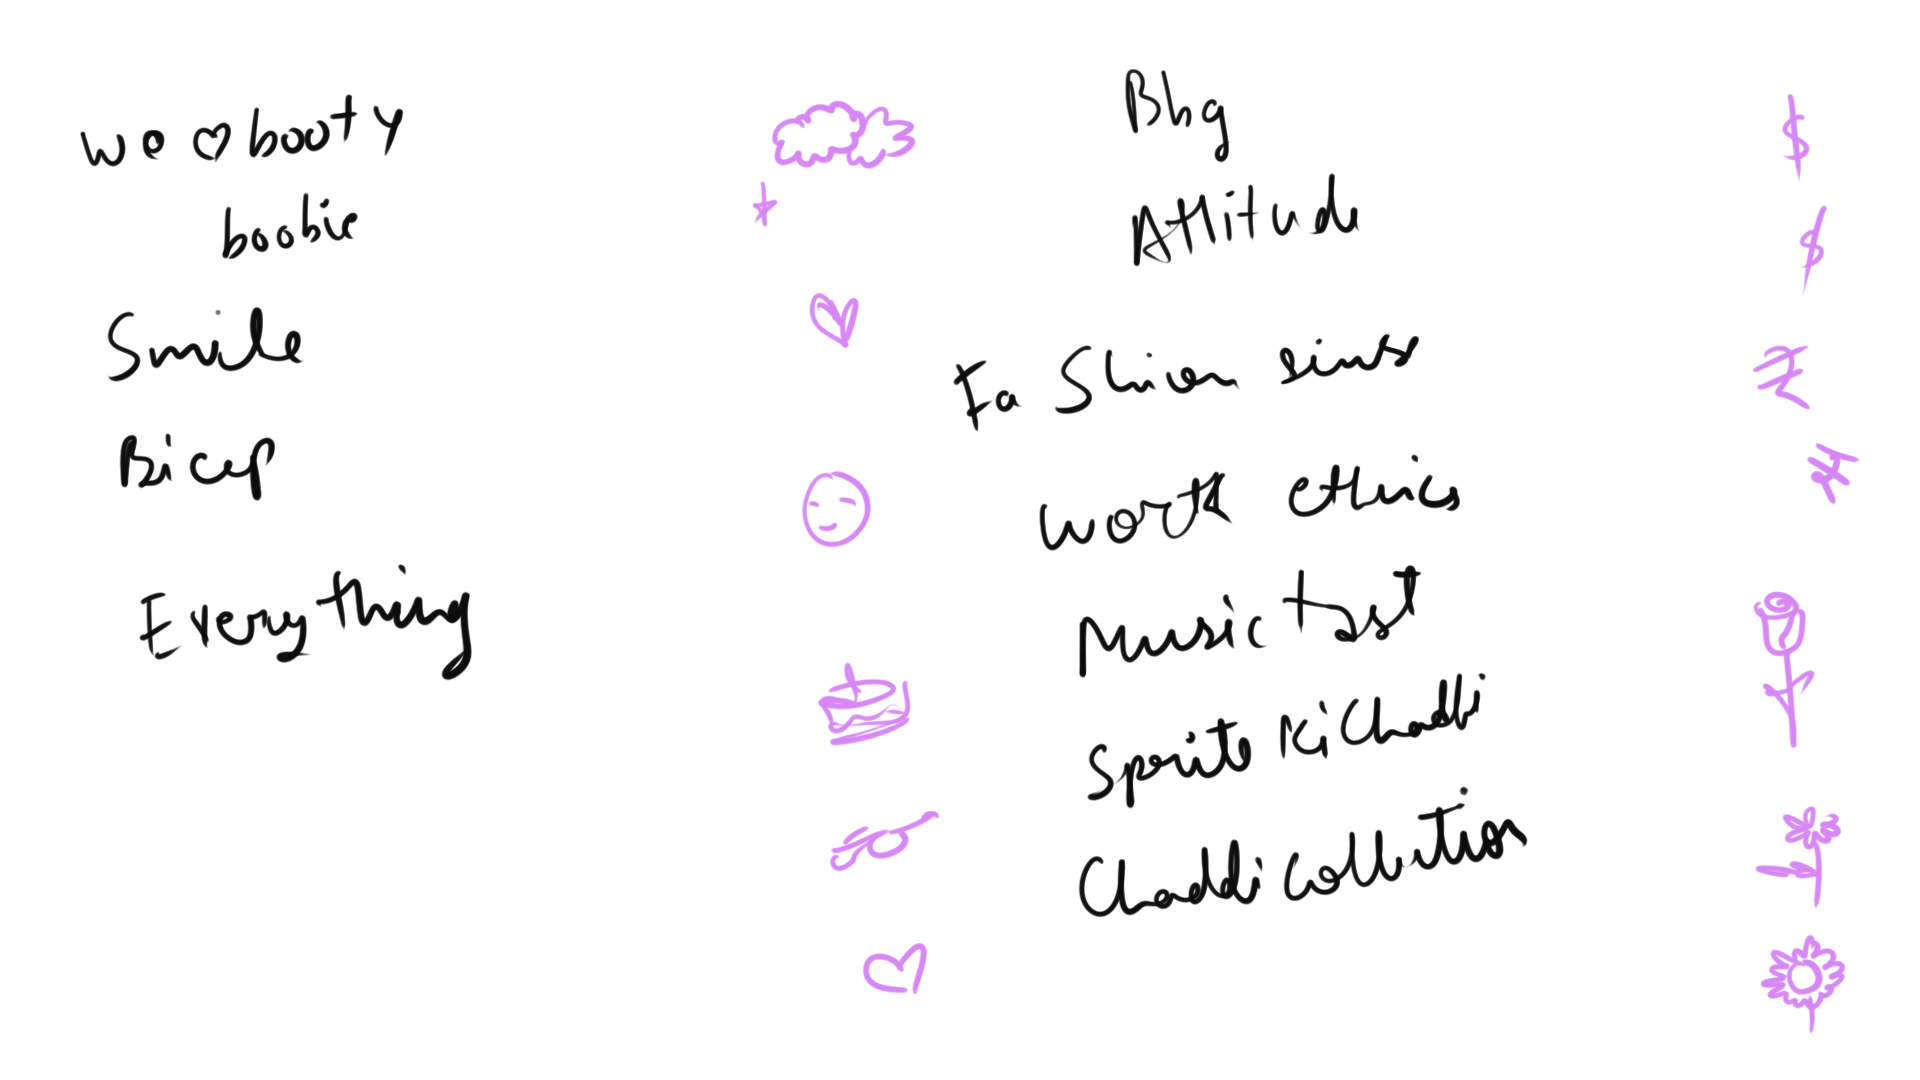 we ♡ booty
boobie
Smile
Bicep
Everything
Bhg
Attitude
Fashion sense
work ethics
Music tast
Sprite ki Chaddi
Chaddi collection
$
$
₹
₹